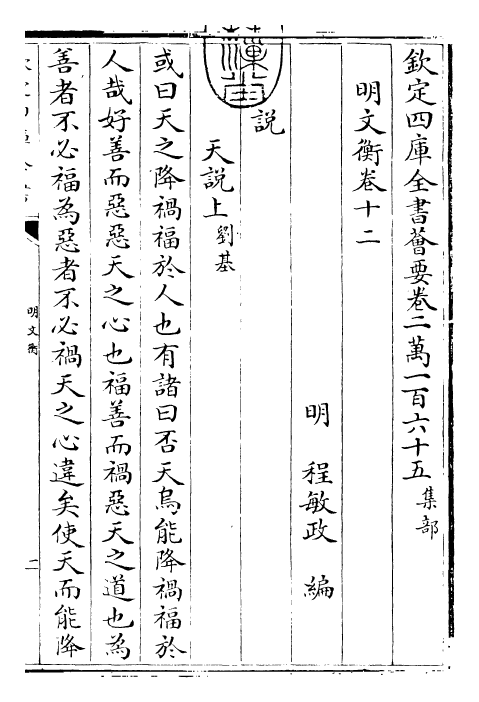 欽定四庫全書薈要卷二萬一百六十五 集部
明文衡卷十二
明 程敏政 編
説
天説上 劉基
或曰天之降禍福於人也有諸曰否天烏能降禍福於
人哉好善而惡惡天之心也福善而禍惡天之道也為
善者不必福為惡者不必禍天之心違矣使天而能降
明文衡
二